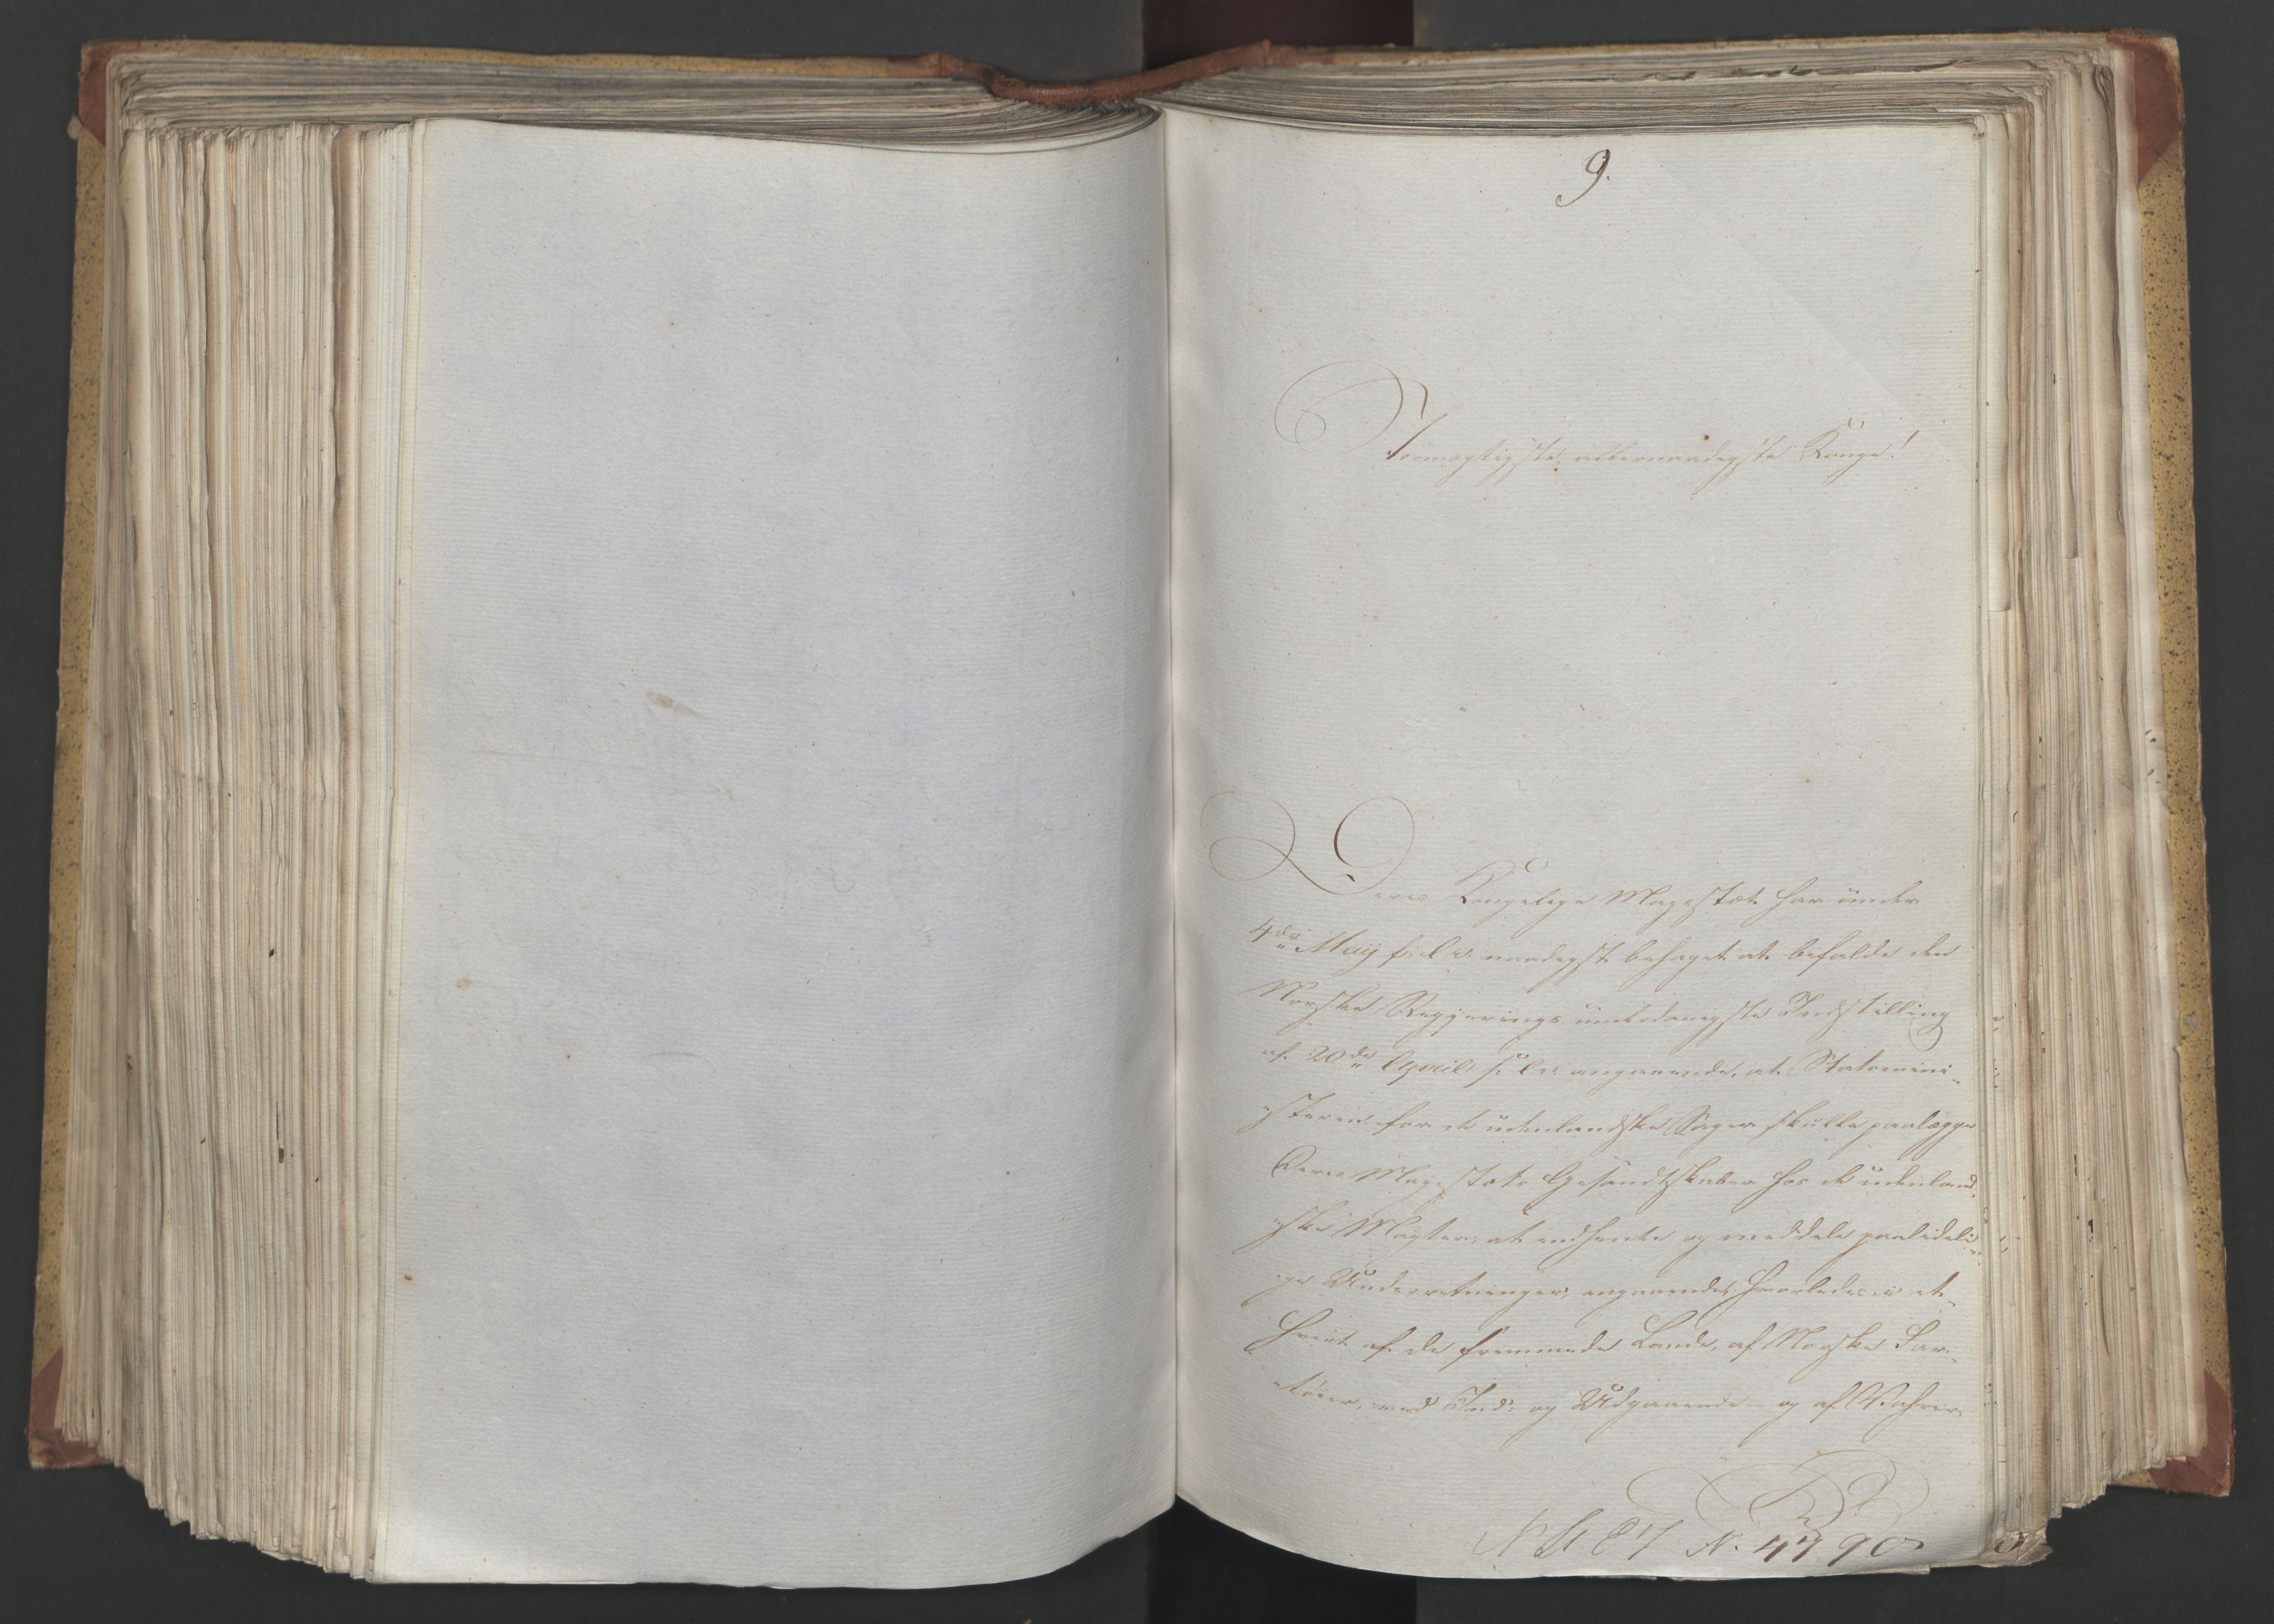 9.
Stormægtigste, allernaadigste Konge!
Deres Kongelige Majestæt har under
4de May s: A: naadigst behaget at bifalde den
Norske Regjerings underdanigste Indstilling
af 20de April s: A: angaaende, at Statsmini-
steren for de udenlandske Sager skulle paalægge
Deres Majestæts Gesandtskaber hos de udenland-
ske Magter, at indhente og meddele paalideli-
ge Underretninger, angaaende, hvorledes i et-
hvert af de fremmede Lande, af Norske Far-
tøier, ved Ind- og Udgaaende og af Vahrer